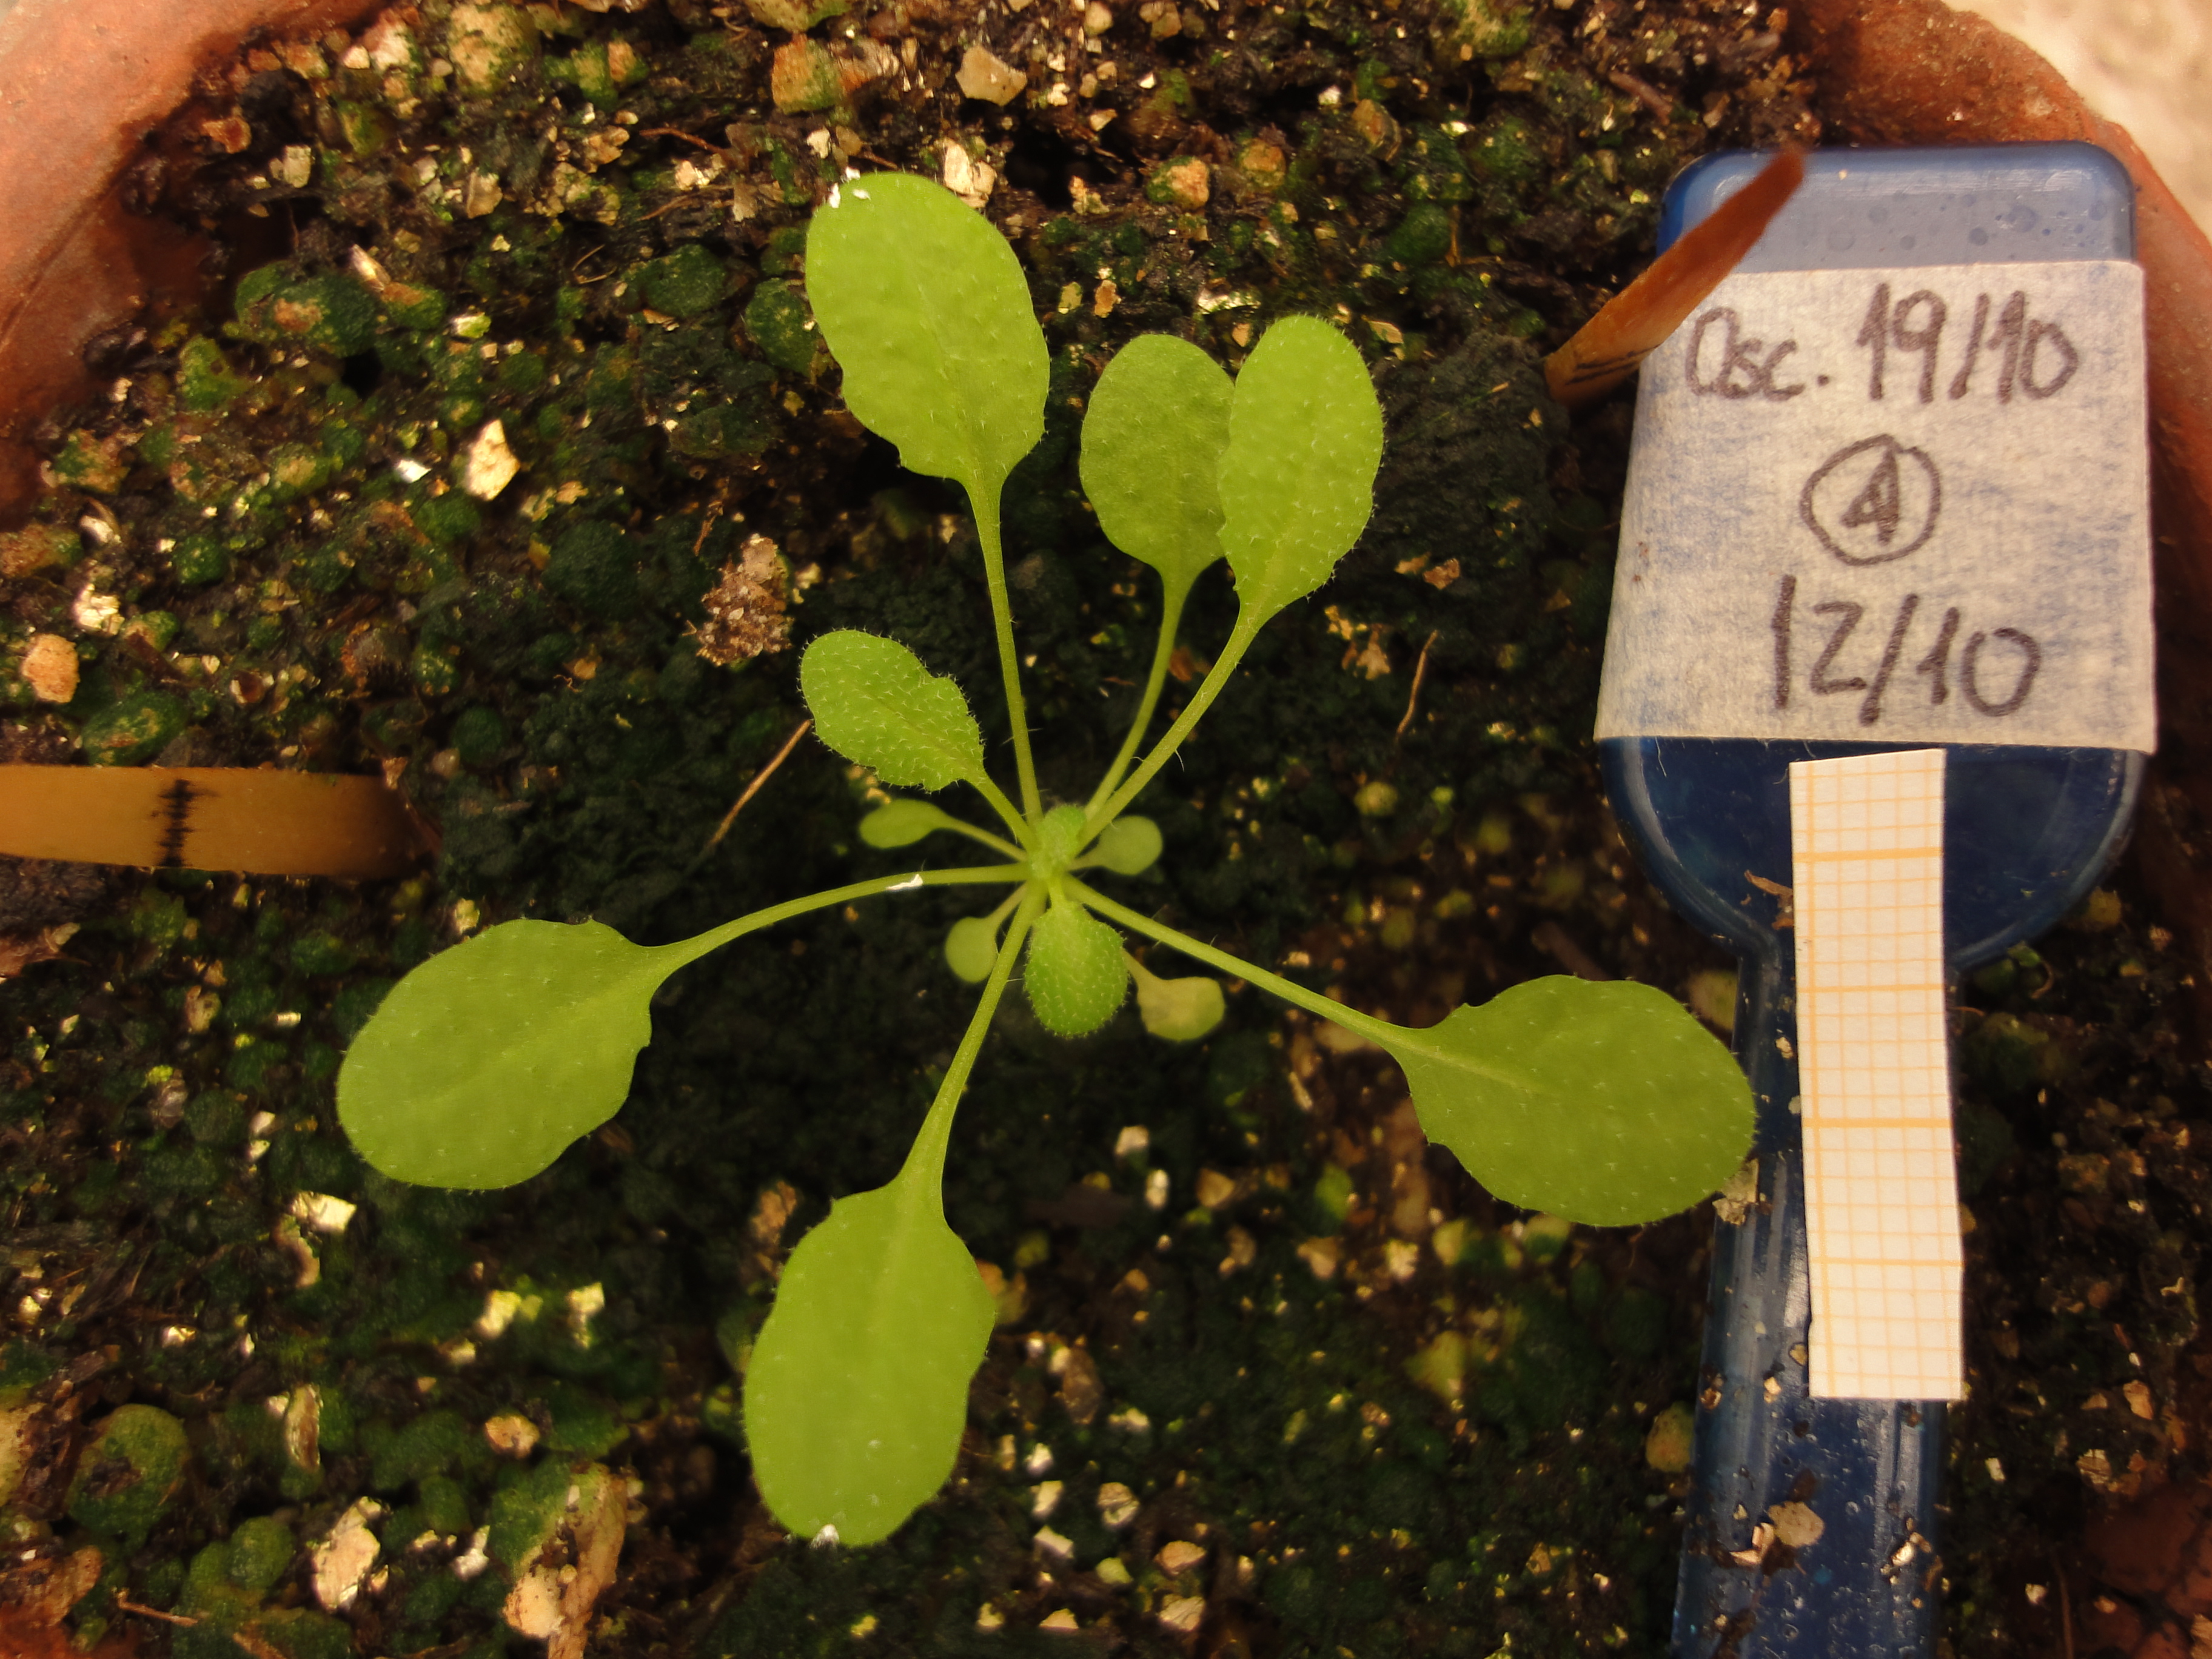 Osc. 19/10
A
12/10